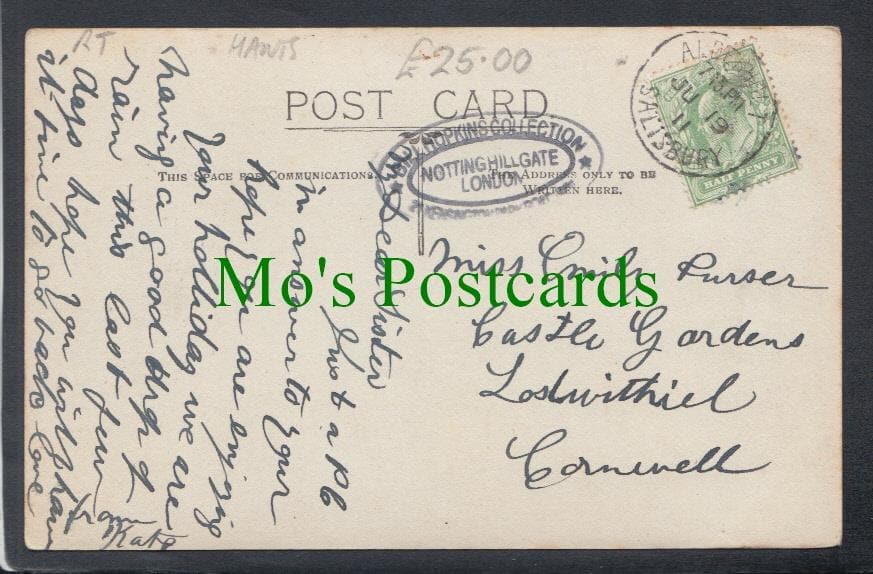 RT
HANTS
£25.00
POST CARD
THIS SPACE FOR COMMUNICATIONS.
THE ADDRESS ONLY TO BE
WRITTEN HERE.
HOPKINS COLLECTION
NOTTINGHILLGATE
LONDON
SALISBURY
7 15 PM
JU 19
11
HALF PENNY
Mo's Postcards
My Dear Sister
Just a PC
in answer to your
hope you are enjoying
your holliday we are
having a good deal of
rain this last few
days hope you will have
it fine to go back love
from
Kate
Miss Emily Purser
Castle Gardens
Lostwithiel
Cornwell